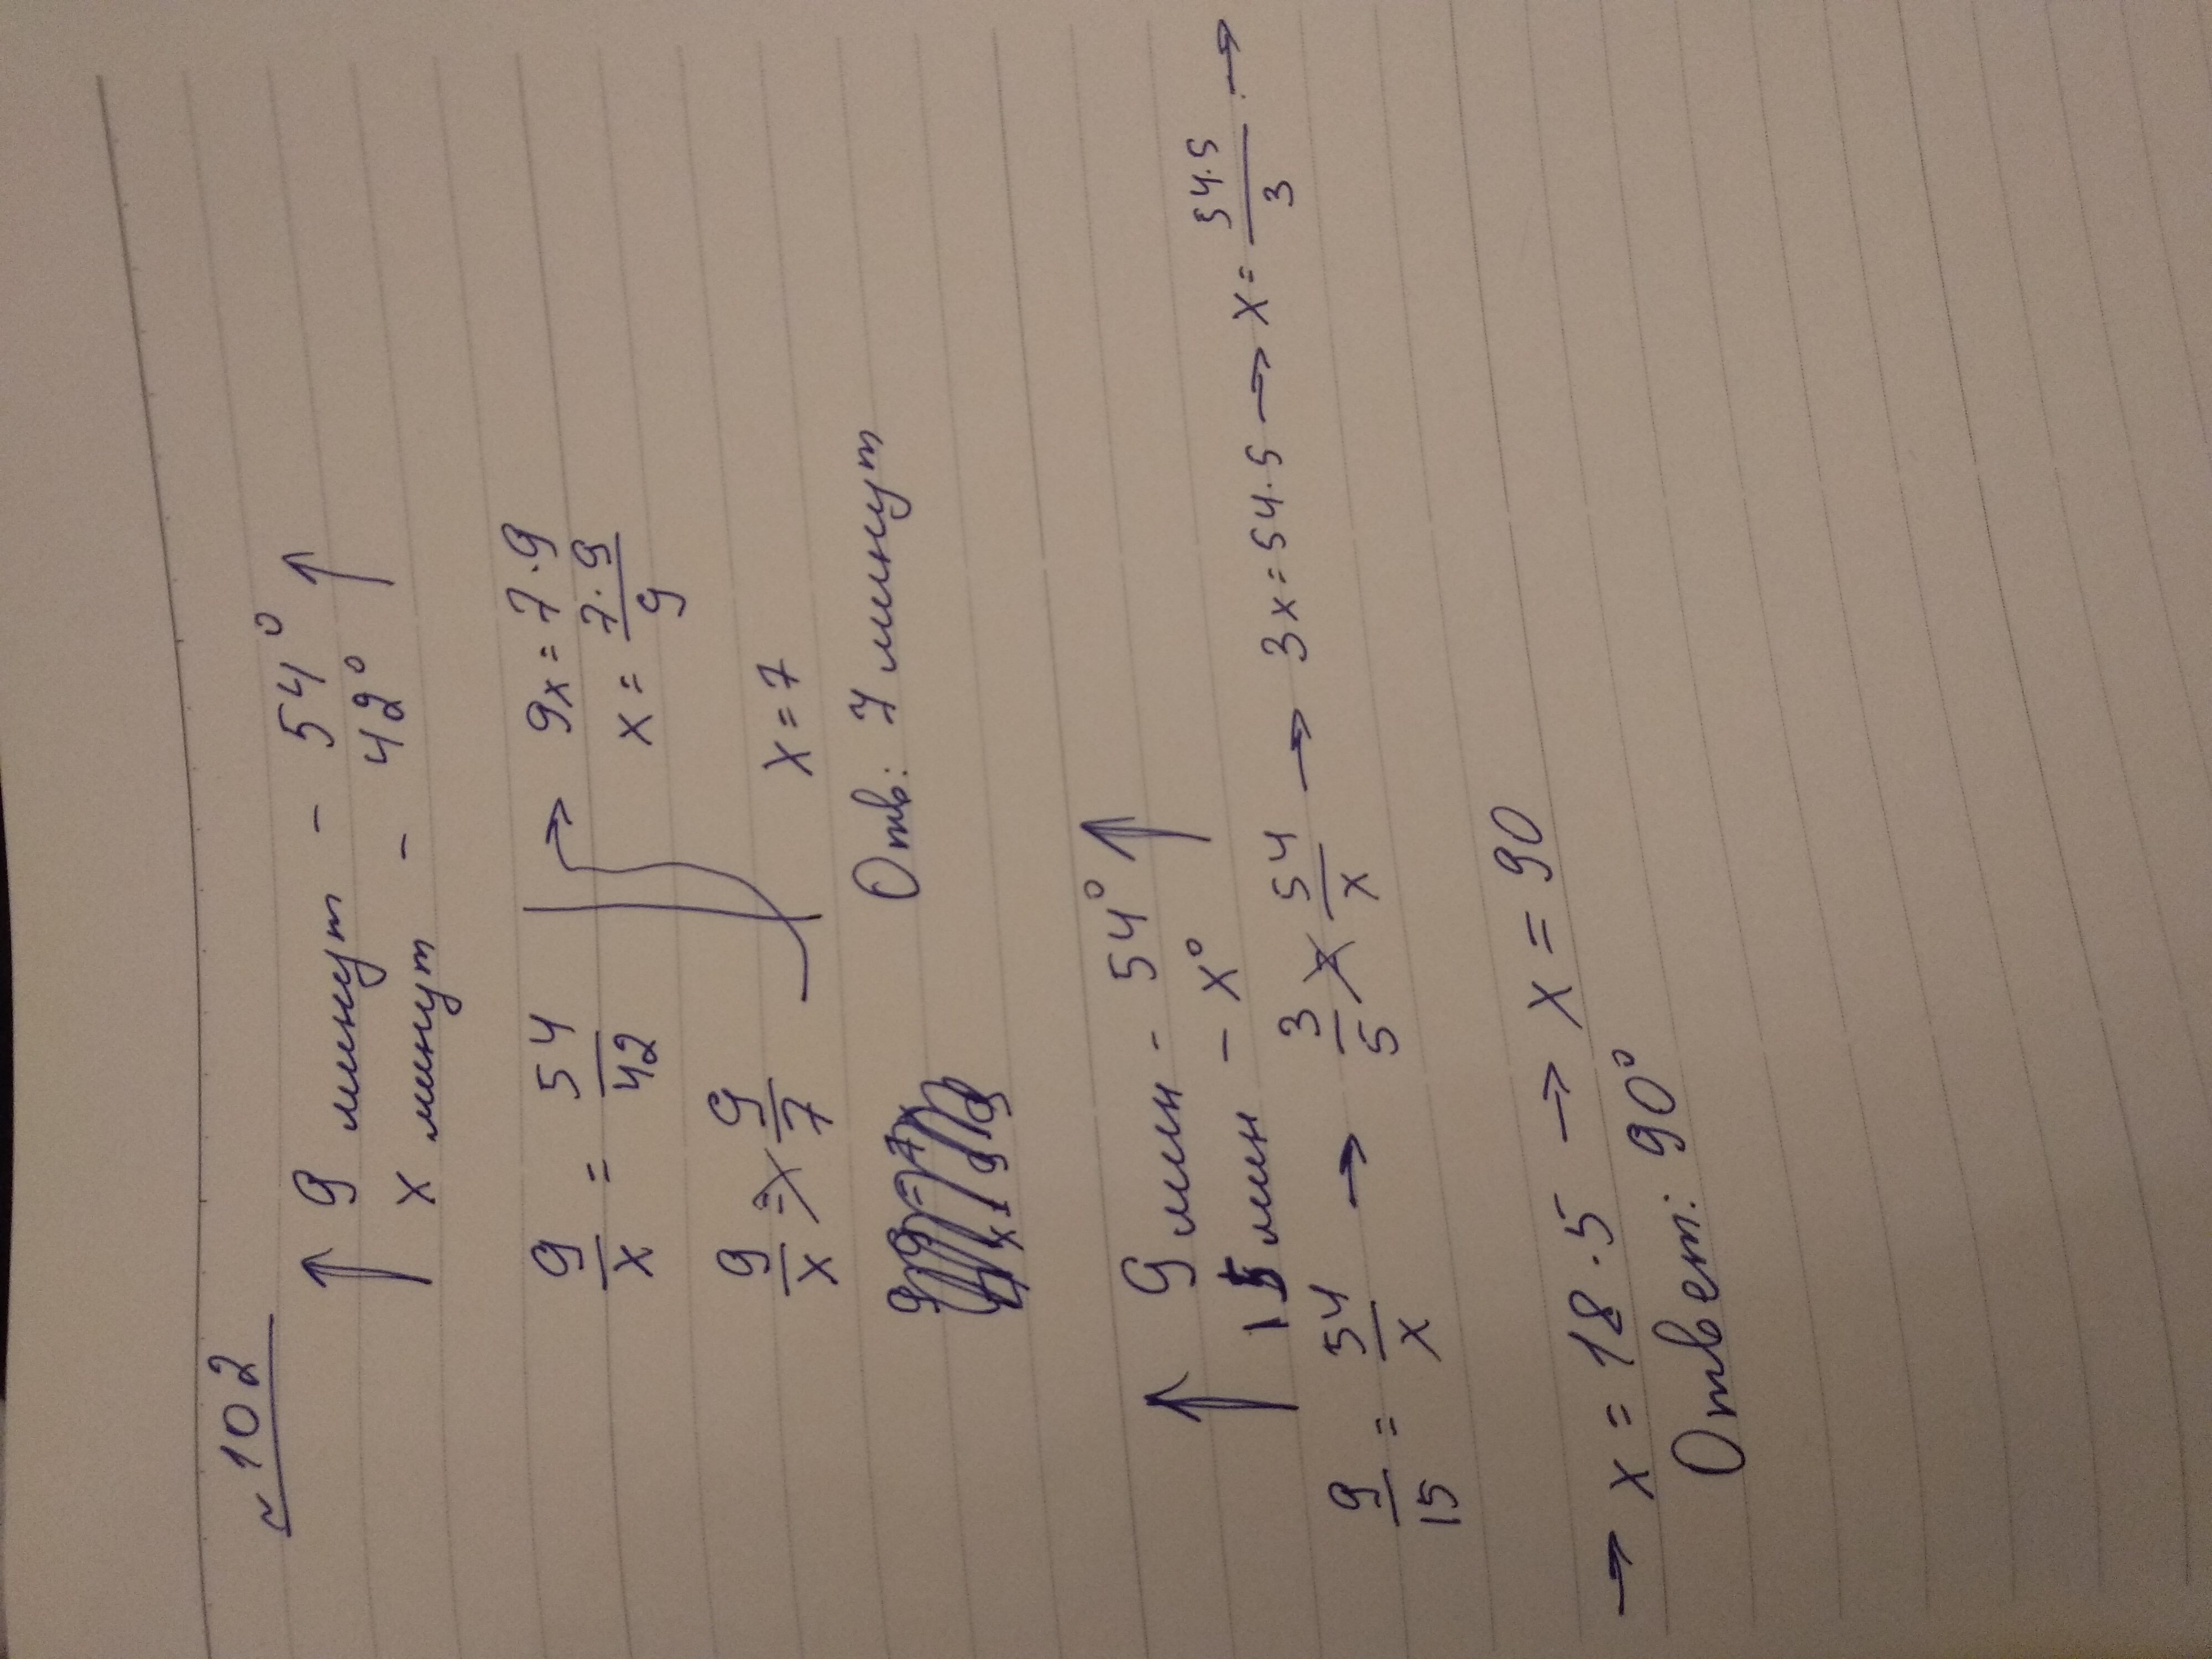 ~ 102
↑ 9 минут - 54° ↑
x минут - 42°
9/x = 54/42 → 9x = 7·9
x = 7·9/9
9/x = 9/7
x = 7
Отв: 7 минут
↑ 9 мин - 54° ↑
15 мин - x°
9/15 = 54/x → 3/5 54/x → 3x = 54·5 → x = 54·5/3 →
→ x = 18·5 → x = 90
Ответ: 90°